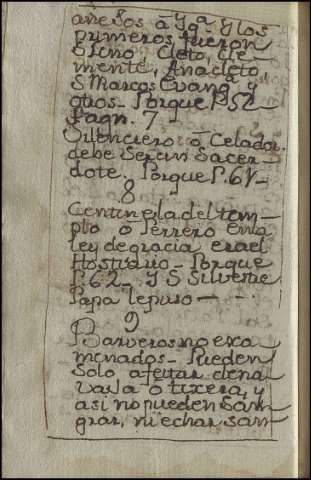 anejos à Yg.ª y los
primeros fueron
S Lino Cleto, Cle-
mente, Anacleto
S Marcos Evang.ª y
otros - Porque P. 52
Pagn. 7
Silenciero ò Celador
debe Ser un Sacer
dote. Porque P. 61-
8
Centinela del tem-
plo ò Perrero en la
ley de gracia era el
Hostiario - Porque
P. 62_ Y S Silvestre
Papa le puso -
9
Barveros no exa
menados - Pueden
Solo afeitar de na
vaja ò tixera, y
asi no pueden San
grar, ni echar San-